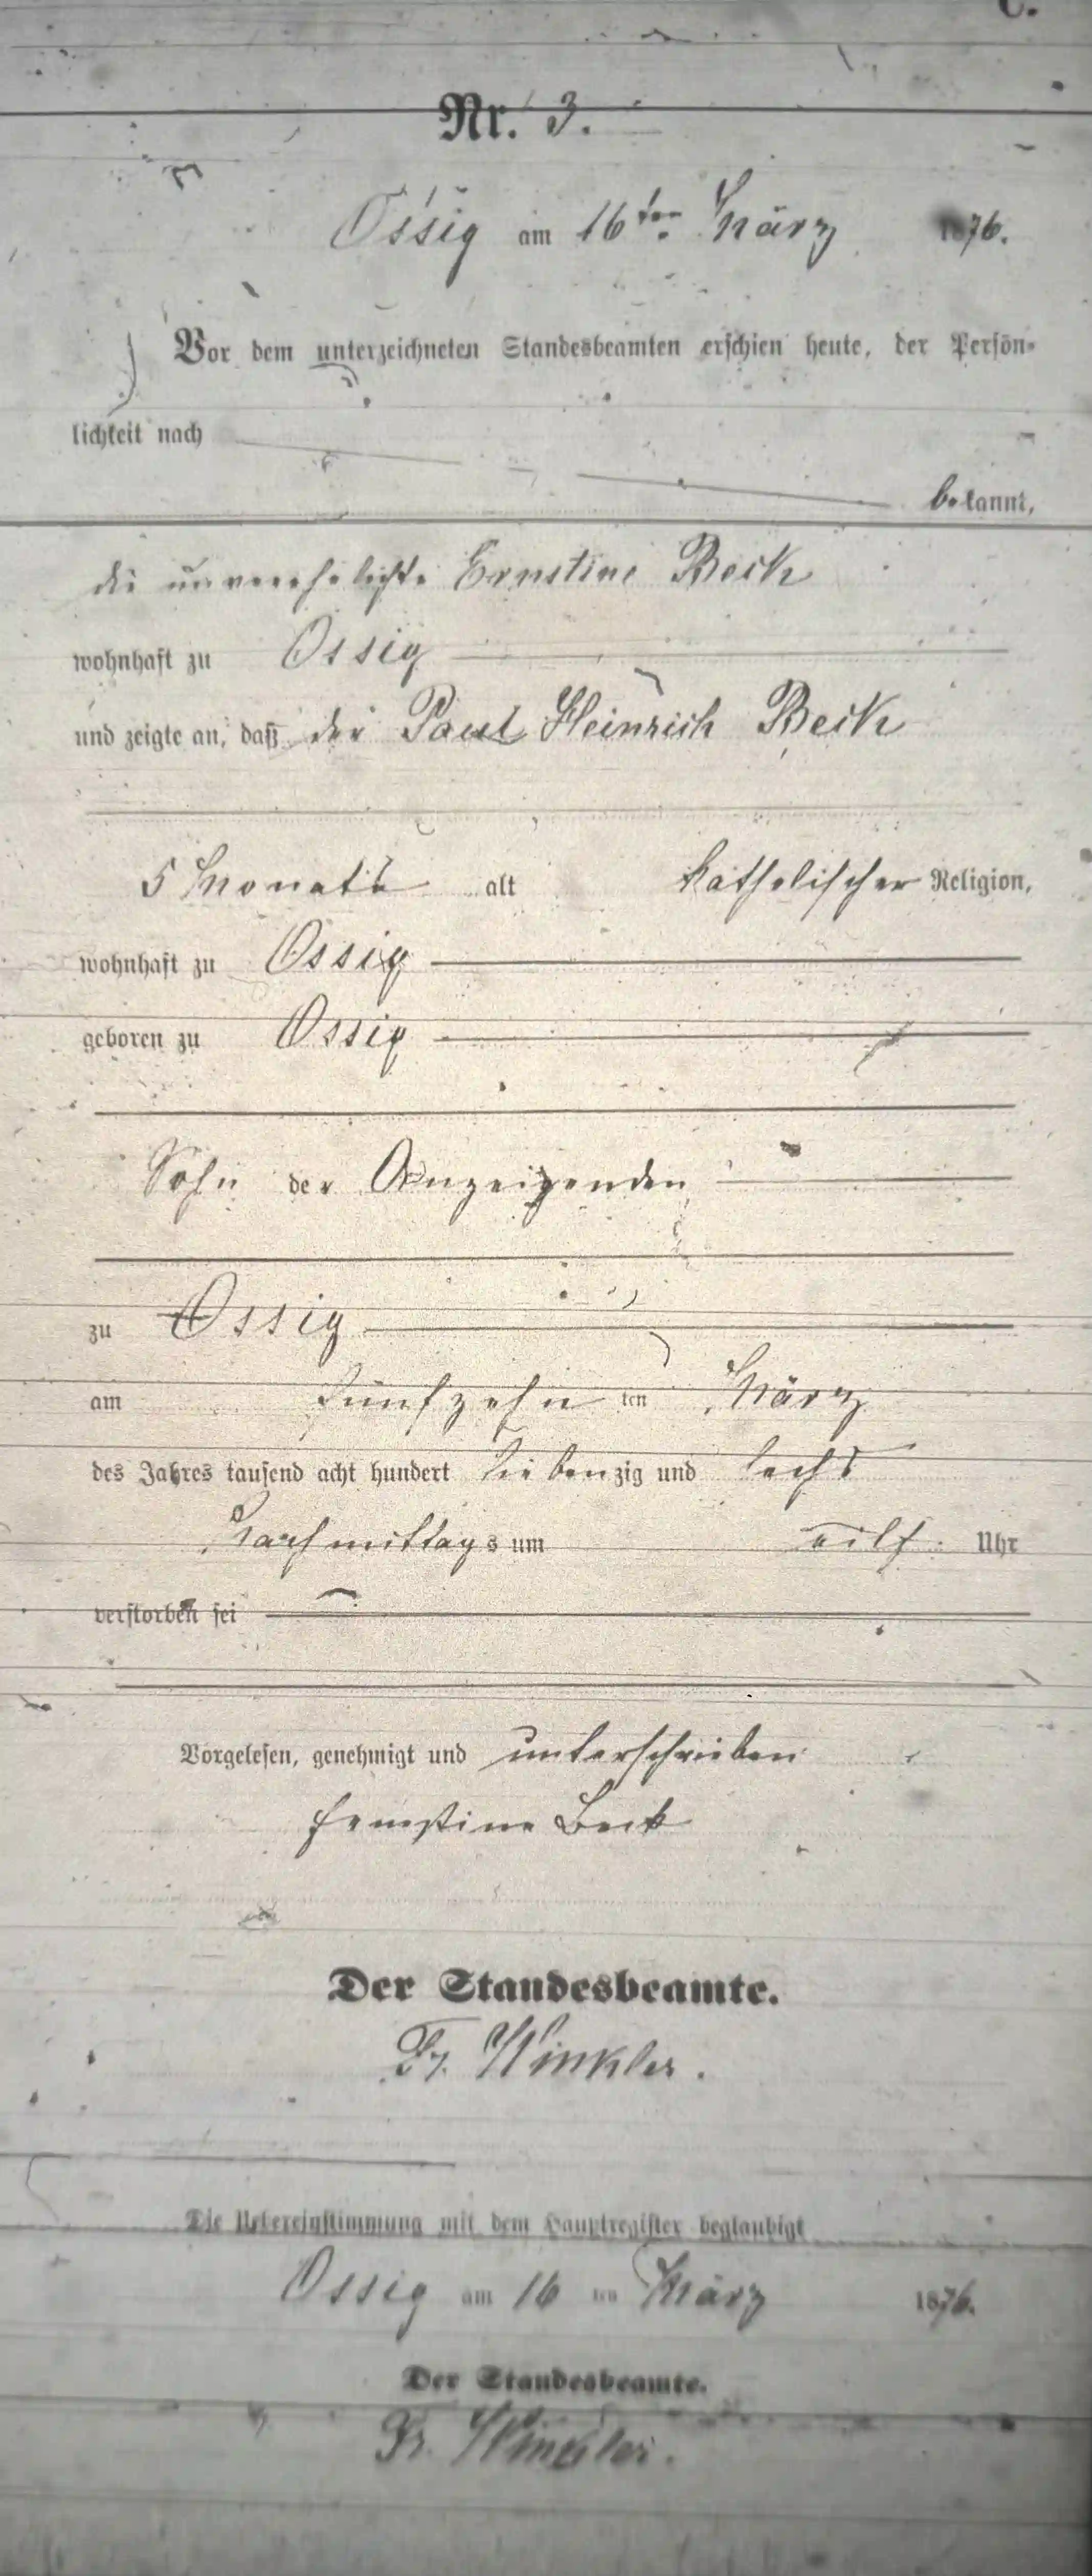 C.
Nr. 3.
Ossig am 16ten März 1876.
Vor dem unterzeichneten Standesbeamten erschien heute, der Persön-
lichkeit nach
bekannt,
die unverehelichte Ernstine Beck
wohnhaft zu Ossig
und zeigte an, daß der Paul Heinrich Beck
5 Monate alt katholischer Religion,
wohnhaft zu Ossig
geboren zu Ossig
Sohn der Anzeigenden
zu Ossig
am fünfzehn ten März
des Jahres tausend acht hundert siebenzig und sechs
Nachmittags um eilf Uhr
verstorben sei
Vorgelesen, genehmigt und unterschrieben
Ernstine Beck
Der Standesbeamte.
Fr. Winkler.
Die Uebereinstimmung mit dem Hauptregister beglaubigt
Ossig am 16 ten März 1876.
Der Standesbeamte.
Fr. Winkler.